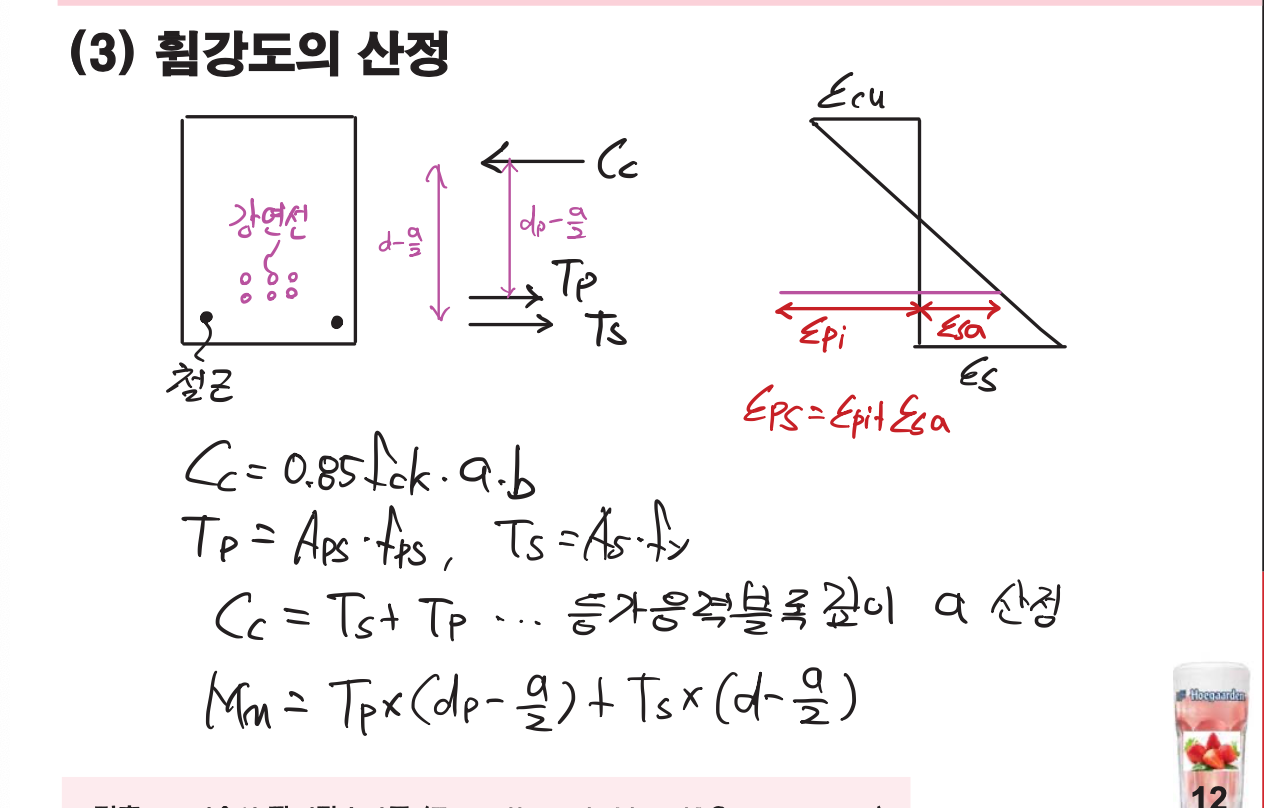 (3) 휨강도의 산정
εcu
Cc
강연선
d-a/2
dp-a/2
Tp
Ts
εpi
εsa
εs
철근
εps=εpi+εsa
Cc=0.85fck·a·b
Tp=Aps·fps, Ts=As·fy
Cc=Ts+Tp ··· 등가응력블록깊이 a 산정
Mn=Tp×(dp-a/2)+Ts×(d-a/2)
Hoegaarden
12